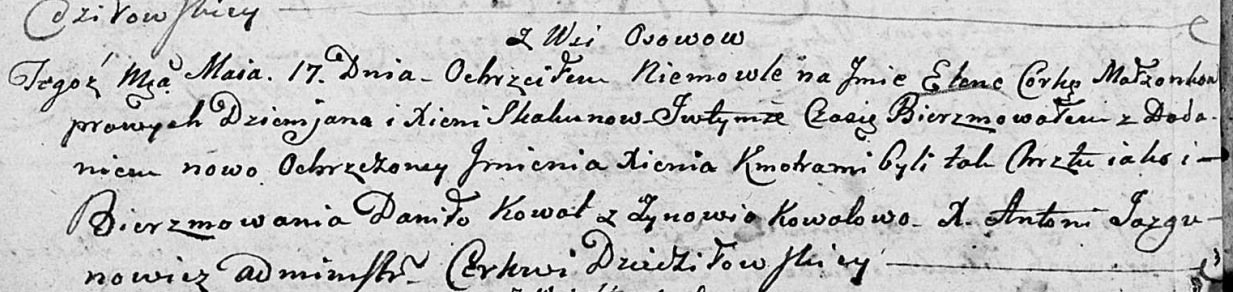 dziłowskiey
z Wsi Osowow
Tegoż Mca Maia. 17. Dnia. Ochrzciłem Niemowle na Jmie Elene Córkę Małzonkow
prawych Dziemjana i Xieni Skakunow Jwtymże Czasię Bierzmowałem z Doda-
niem nowo Ochrzczoney Jmienia Xienia Kmotrami byli tak Chrztu iako i
Bierzmowania Daniło Kowal z Zynowio Kowalowo. X. Antoni Jazgu-
nowicz administr. Cerkwi Dziedziłowskiey